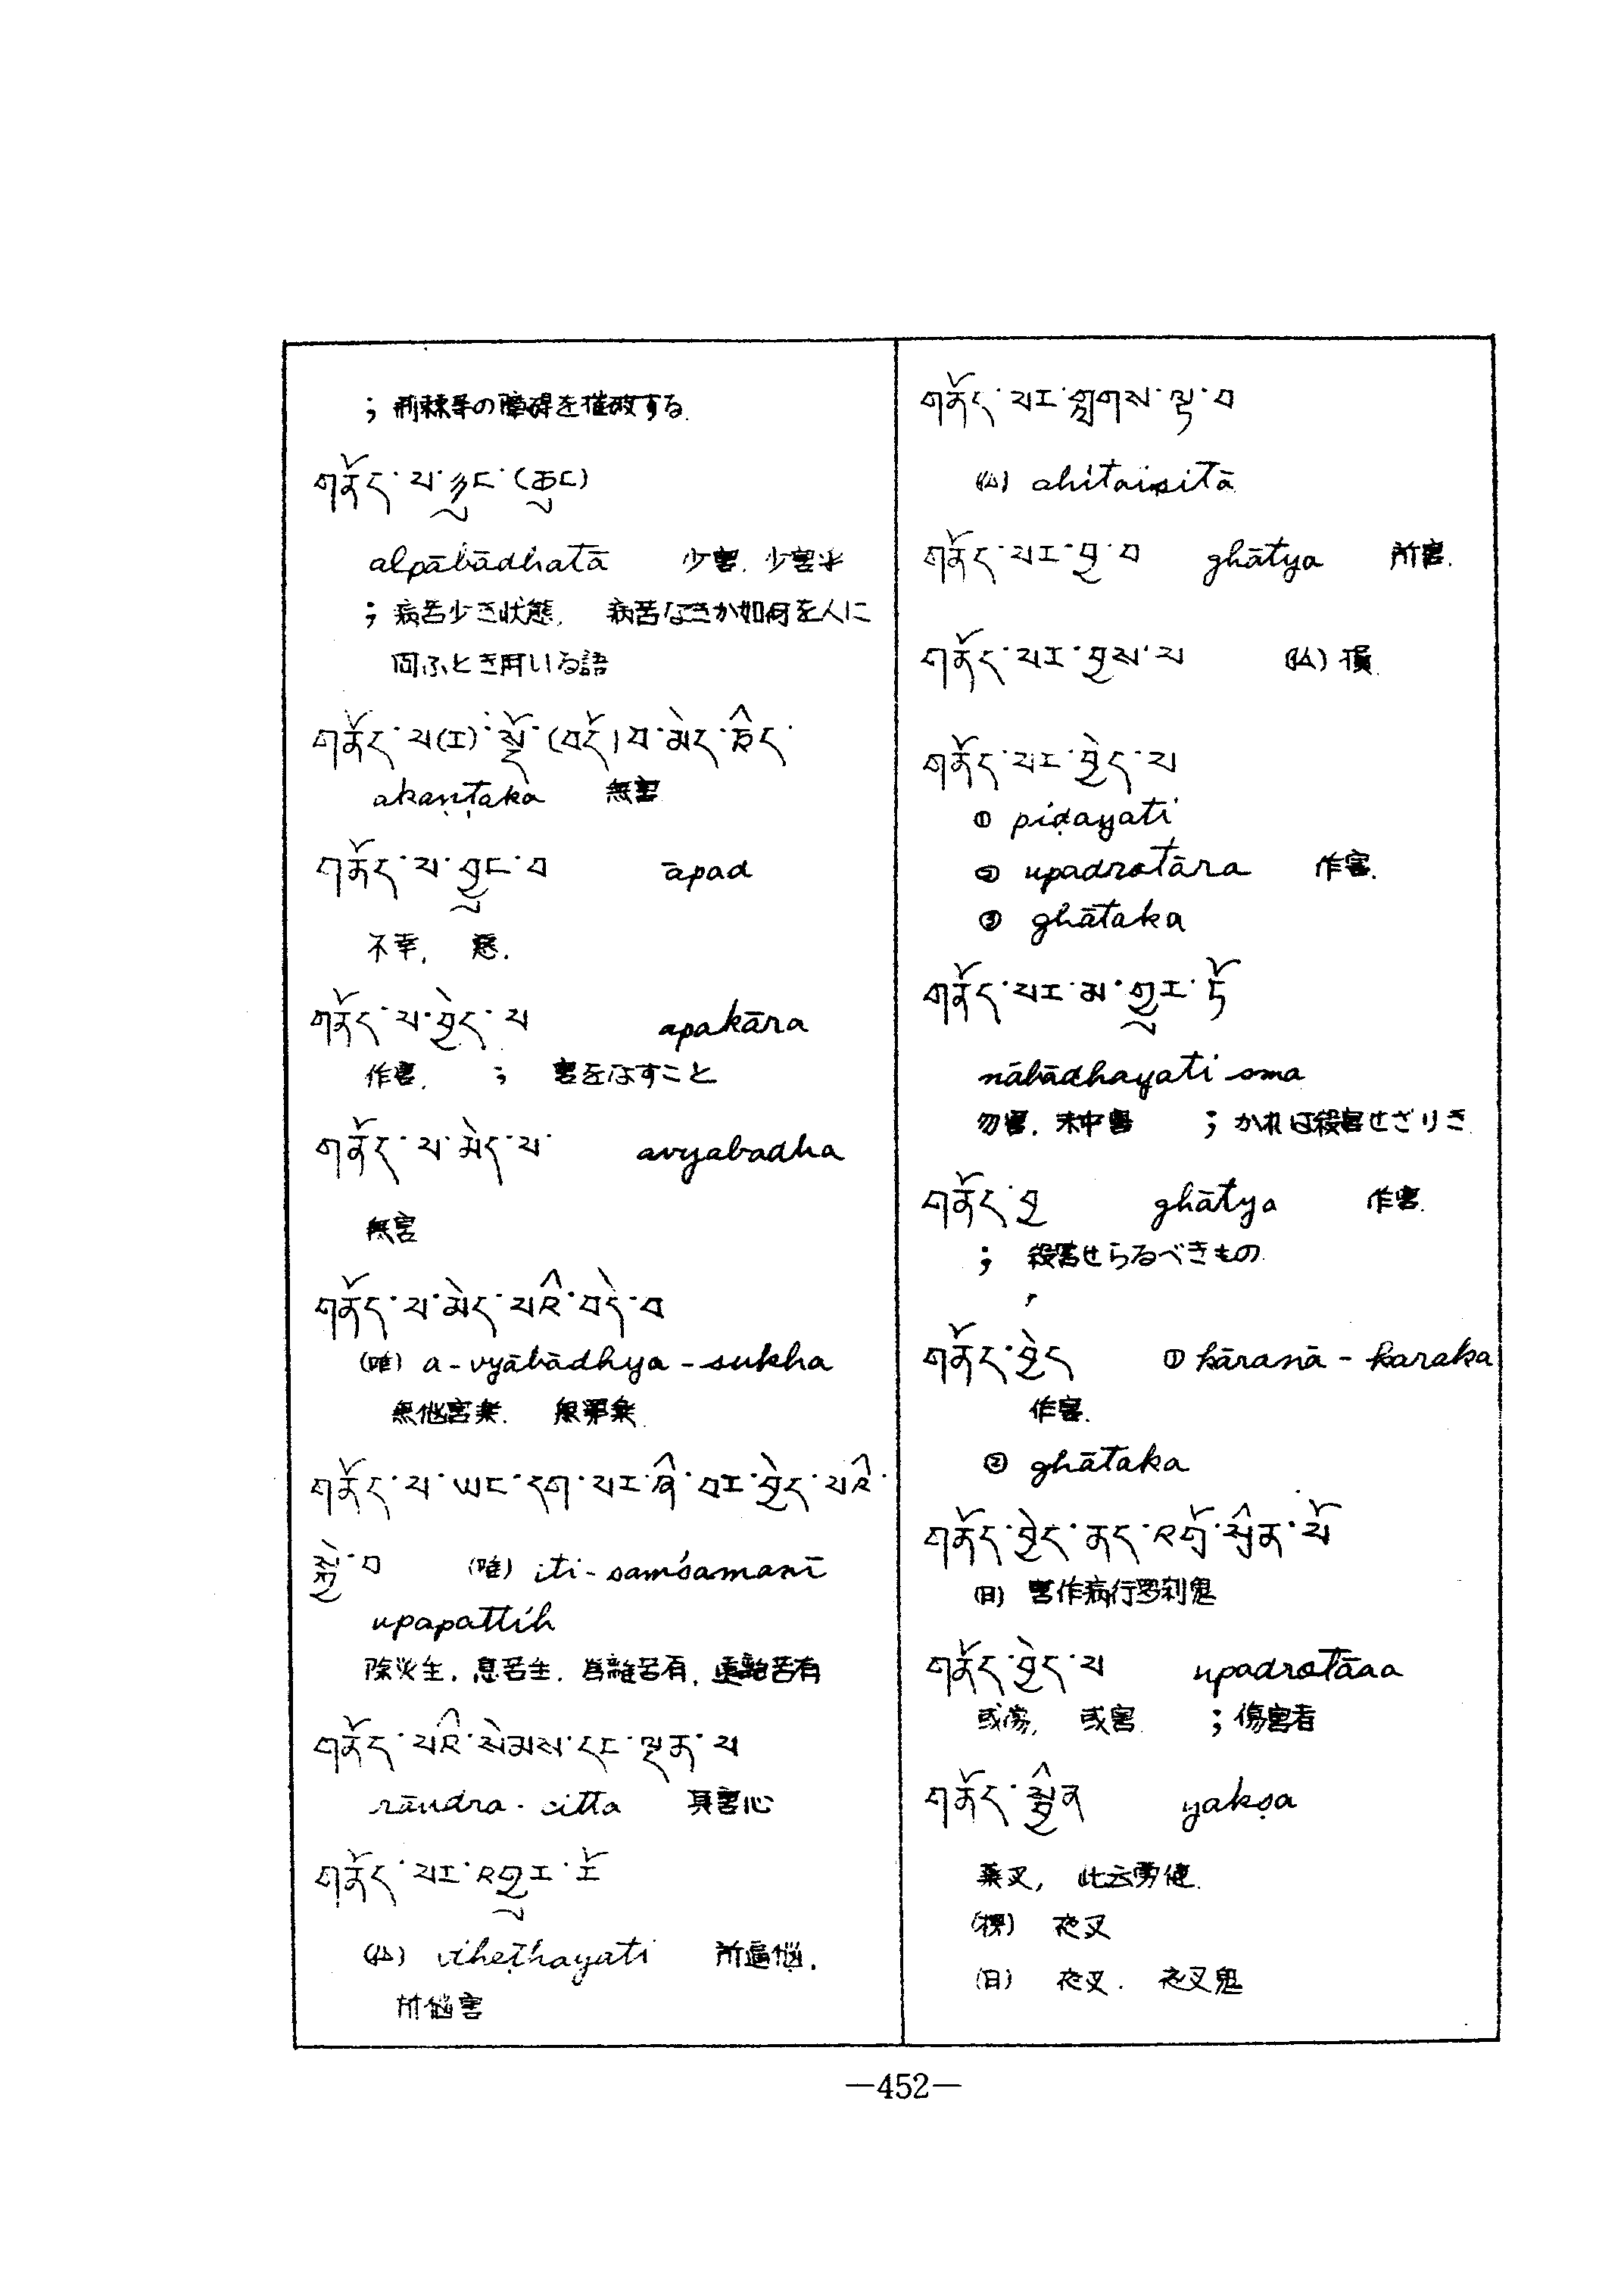 ; 荊棘等の障碍を催破する.
གནོད་པ་ཉུང་(ཆུང)
alpābādhatā 少害. 少害半
; 病苦少き状態, 病苦なきか如何を人に
問ふとき用いる語
གནོད་པ(ར)་སྡོ་(བདོ)བ་མེད་ཅིང་
akaṇṭaka 無害
གནོད་པ་བྱུང་བ āpad
不幸, 悪.
གནོད་པ་བྱེད་པ apakāra
作害, ; 害をなすこと
གནོད་པ་མེད་པ་ avyabadha
無害
གནོད་པ་མེད་པའི་བདེ་བ
(唯) a-vyābādhya-sukha
無他害楽. 無罪楽
གནོད་པ་ཡང་དག་པར་ཞི་བར་བྱེད་པའི་
སྐྱེ་བ (唯) iti-samśamanī
upapattih
除災生, 息苦生, 為離苦有, 遠離苦有
གནོད་པའི་སེམས་དང་ལྡན་པ
rāudra-citta 具害心
གནོད་པར་འགྱུར་རོ
(仏) viheṭhayati 所逼悩,
所悩害
གནོད་པར་གྲགས་ལྟ་བ
(仏) ahitaiṣitā
གནོད་པར་བྱ་བ ghātya 所害.
གནོད་པར་བྱས་པ (仏) 損.
གནོད་པར་བྱེད་པ
① piḍayati
② upadrotāra 作害.
③ ghātaka
གནོད་པར་མ་གྱུར་ཏོ
nābādhayati sma
勿害. 未中害 ; かれは殺害せざりき.
གནོད་བྱ ghātya 作害.
; 殺害せらるべきもの.
གནོད་བྱེད ① kāranā-karaka
作害.
② ghātaka
གནོད་བྱེད་ནད་འགྲོ་སྲིན་པོ
(日) 害作病行罗刹鬼
གནོད་བྱེད་པ upadrotāaa
或傷, 或害. ; 傷害者
གནོད་སྦྱིན yakṣa
薬叉, 此云勇健.
(楞) 夜叉
(日) 夜叉. 夜叉鬼
—452—